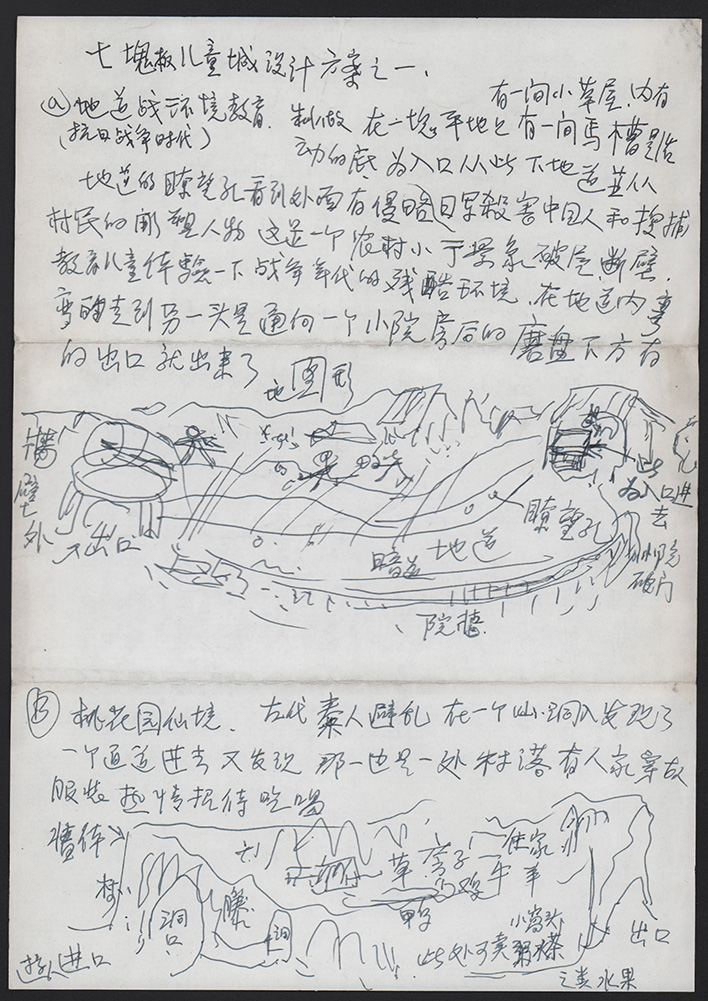 七塊板儿童城设计方案之一.
有一间小草屋.内有
ⓐ地道战环境教育. 制做 在一塊平地上有一间马槽是活
(抗日战争时代) 动的底 为入口从此下地道並从
地道的瞭望孔看到外面有侵略日军殺害中国人和搜捕
村民的雕塑人物 这是一个农村小 景象 破屋.断壁.
教育儿童体驗一下战争年代的残酷环境. 在地道内弯
弯的走到另一头是通向一个小院房后的磨盘下方有
的出口就出来了
地图形
墙壁外
出口
此为入口进去
瞭望孔
暗道 地道
小院破门
院墙
Ⓑ 桃花园仙境. 古代秦人避乱 在一个山洞入发现了
一个通道进去又发现 那一边是一处村落有人家穿故
服装热情招待吃喝
墙体
山
草房子 住家
鸡 牛 羊
树
洞口
藤
洞
鸭子
小窝头
此处可卖 粥水茶
之类水果
出口
游人进口